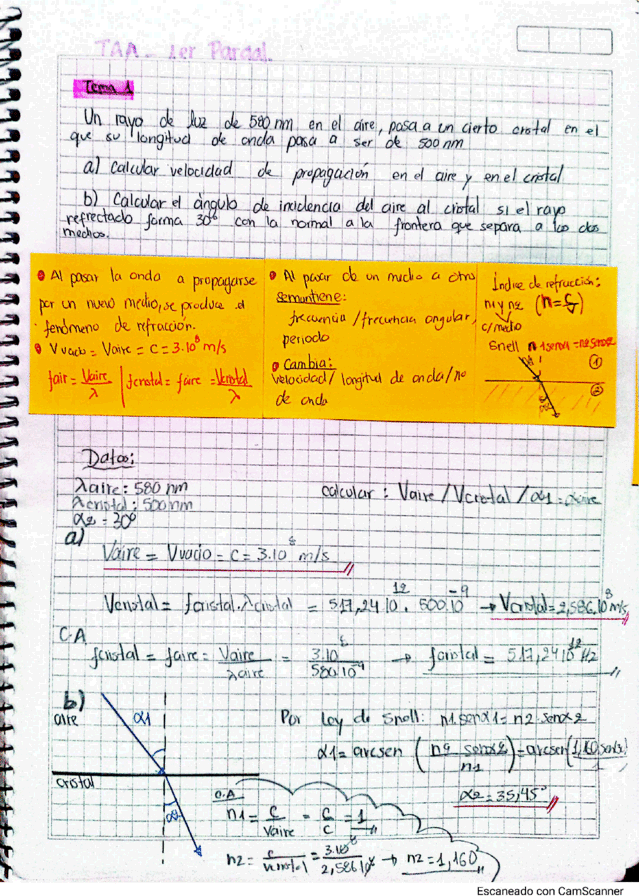 TAA - 1er Parcial.
Tema 1
Un rayo de luz de 580 nm en el aire, pasa a un cierto cristal en el
que su longitud de onda pasa a ser de 500 nm
a) Calcular velocidad de propagación en el aire y en el cristal
b) Calcular el ángulo de incidencia del aire al cristal si el rayo
refractado forma 30° con la normal a la frontera que separa a los dos
medios.
Al pasar la onda a propagarse
por un nuevo medio, se produce el
fenómeno de refracción.
Vvacio = Vaire = C = 3.10⁸ m/s
fair = Vaire/λ | fcristal = faire = Vcristal/λ
Al pasar de un medio a otro
se mantiene:
frecuencia / frecuencia angular,
periodo
Cambia:
velocidad / longitud de onda / nº
de onda
Índice de refracción:
n1 y n2 (n = c/v)
c/medio
Snell n1 senα1 = n2 senα2
1
2
Datos:
λaire: 580 nm
λcristal: 500 nm
α2 = 30°
calcular: Vaire / Vcristal / α1 = αaire
a)
Vaire = Vvacio = C = 3.10⁸ m/s
Vcristal = fcristal . λcristal = 517,24 10¹² . 500.10⁻⁹ → Vcristal = 2,586.10⁸ m/s
C.A
fcristal = faire = Vaire/λaire = 3.10⁸/580.10⁻⁹ → fcristal = 517,24 10¹² Hz
b)
aire
α1
cristal
α2
Por Ley de Snell: n1.senα1 = n2 senα2
α1 = arcsen (n2 senα2/n1) = arcsen (1,160.senα2/1)
α2 = 35,45°
C.A
n1 = c/Vaire = c/c = 1
n2 = c/Vcristal = 3.10⁸/2,586.10⁸ → n2 = 1,160
Escaneado con CamScanner